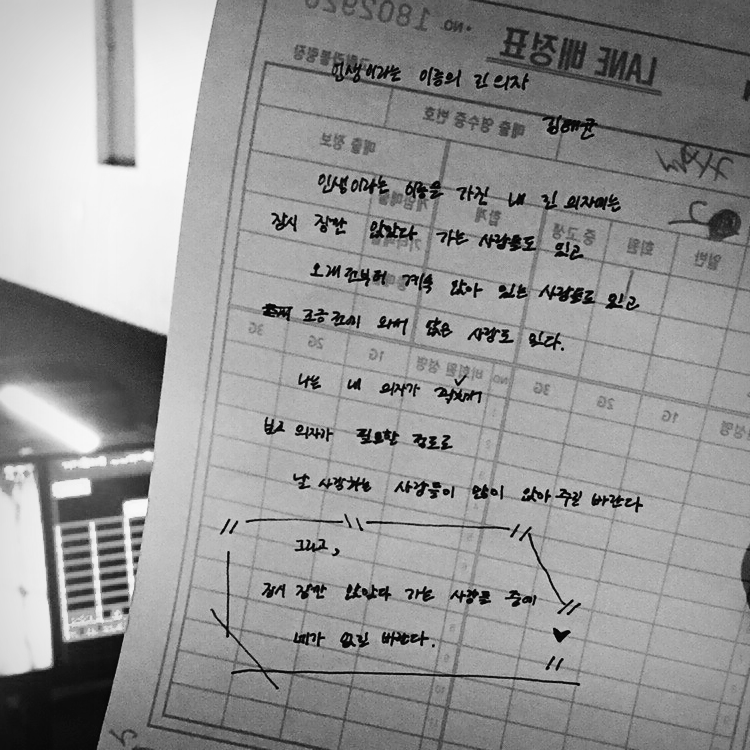 No. 180292
LANE 배정표
인생이라는 이름의 긴 의자
김해균
매출 영수증 번호
매출 정보
인생이라는 이름을 가진 내 긴 의자에는
잠시 잠깐 앉았다 가는 사람들도 있고
합계
중고생
회원
일반
오래전부터 계속 앉아 있는 사람들도 있고
조금 전에 와서 앉은 사람도 있다.
3G 2G 1G 비회원 성명 NO 3G 2G 1G
나는 내 의자가 꽉 차서
보조 의자가 필요한 정도로
날 사랑하는 사람들이 많이 앉아 주길 바란다
그리고,
잠시 잠깐 앉았다 가는 사람들 중에
네가 없길 바란다.